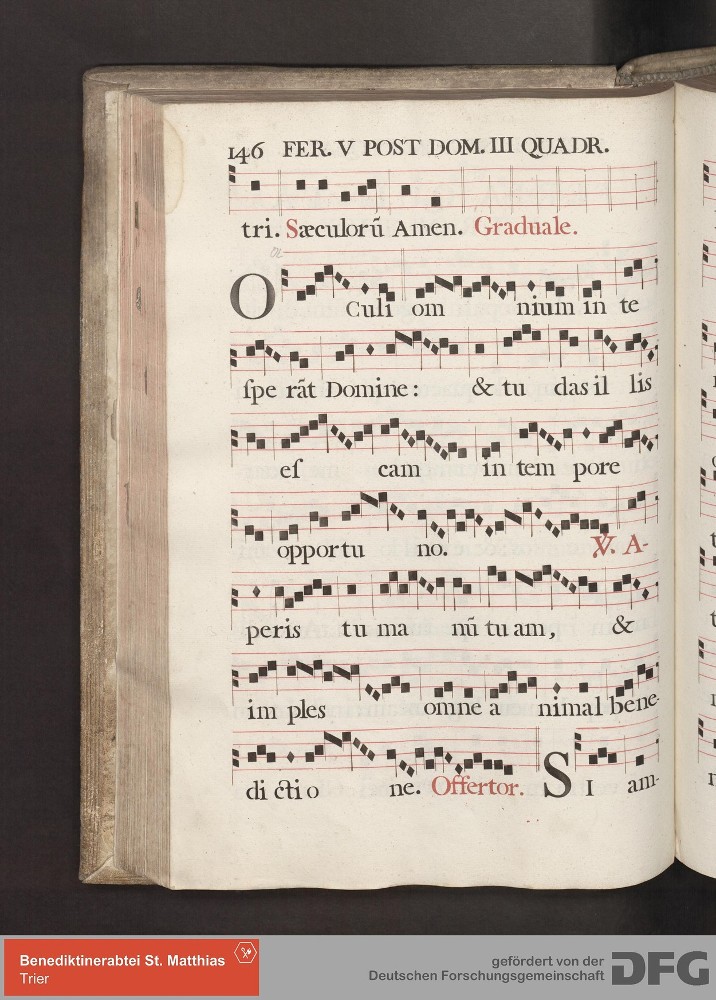 146 FER. V POST DOM. III QUADR.
tri. Sæculorũ Amen. Graduale.
OCuli om nium in te
ſpe rãt Domine: & tu das il lis
eſ cam in tem pore
opportu no. ℣. A-
peris tu ma nũ tu am, &
im ples omne a nimal bene-
di ctio ne. Offertor. SI am-
Benediktinerabtei St. Matthias
Trier
gefördert von der
Deutschen Forschungsgemeinschaft DFG